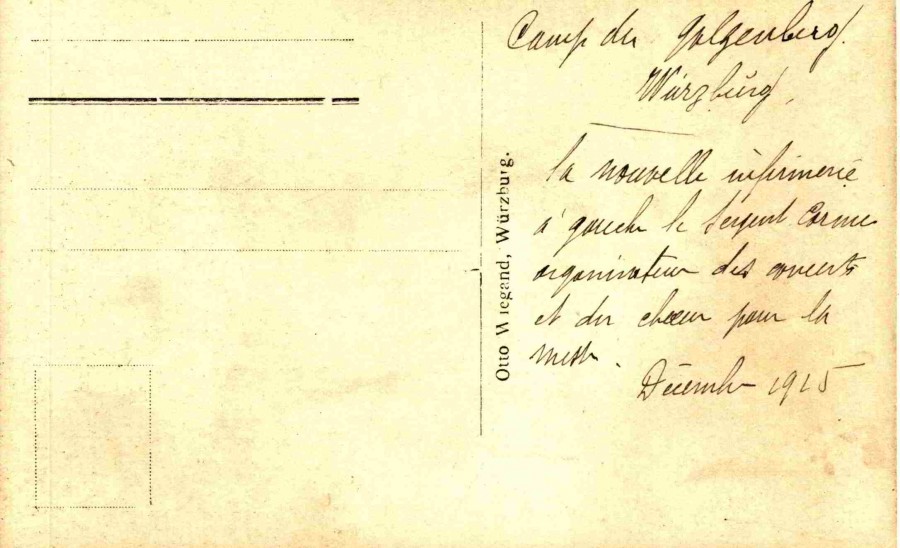 Camp du Galgenberg
Würzburg,
la nouvelle infirmerie
à gauche le Sergent
organisateur des concerts
et du chœur pour la
messe.
Décembre 1915
Otto Wiegand, Würzburg.